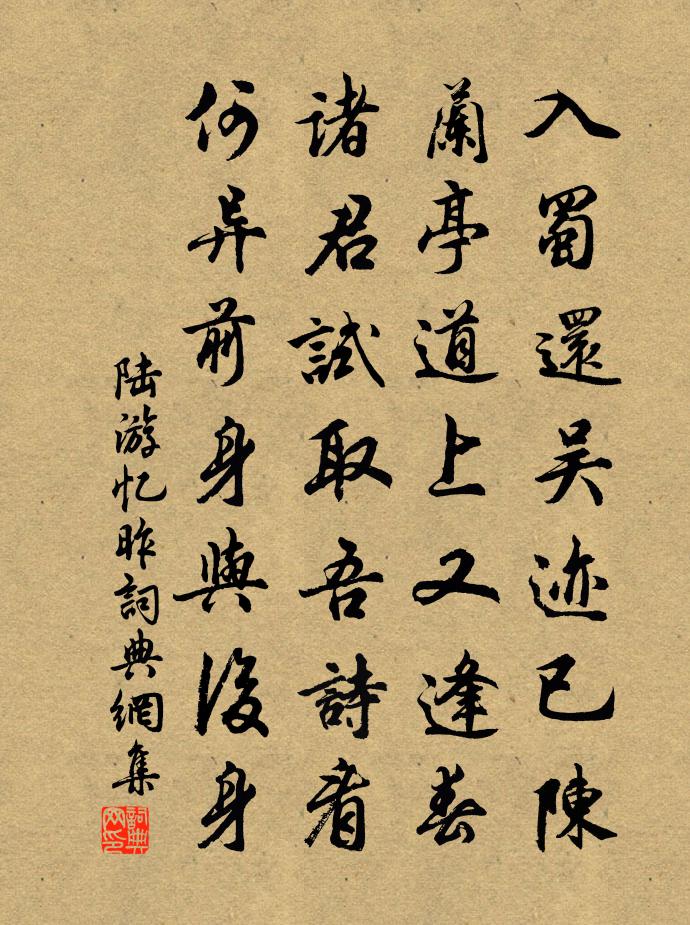 入蜀還吴迹已陳
蘭亭道上又逢春
諸君試取吾詩看
何异前身與後身
陆游忆昨詞典網集
詞典
网印